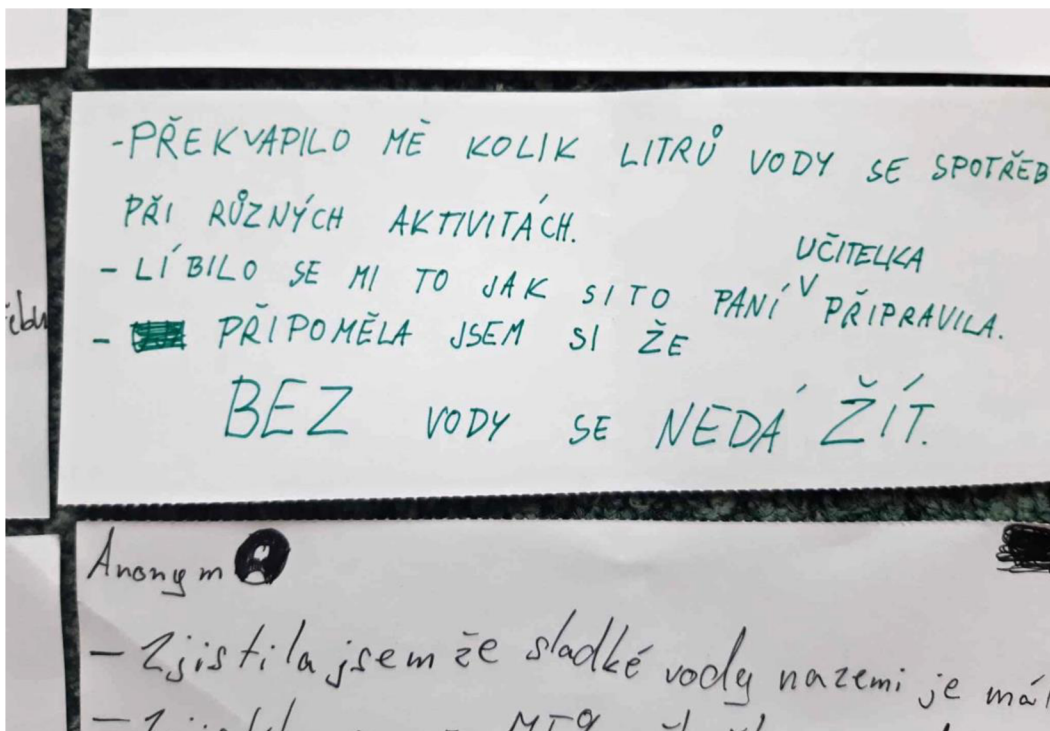 -PŘEKVAPILO MĚ KOLIK LITRŮ VODY SE SPOTŘEB
PŘI RŮZNÝCH AKTIVITÁCH.
UČITELKA
- LÍBILO SE MI TO JAK SI TO PANÍ V PŘIPRAVILA.
- PŘIPOMĚLA JSEM SI ŽE
BEZ VODY SE NEDÁ ŽÍT.
Anonym
- Zjistila jsem že sladké vody nazemi je mál